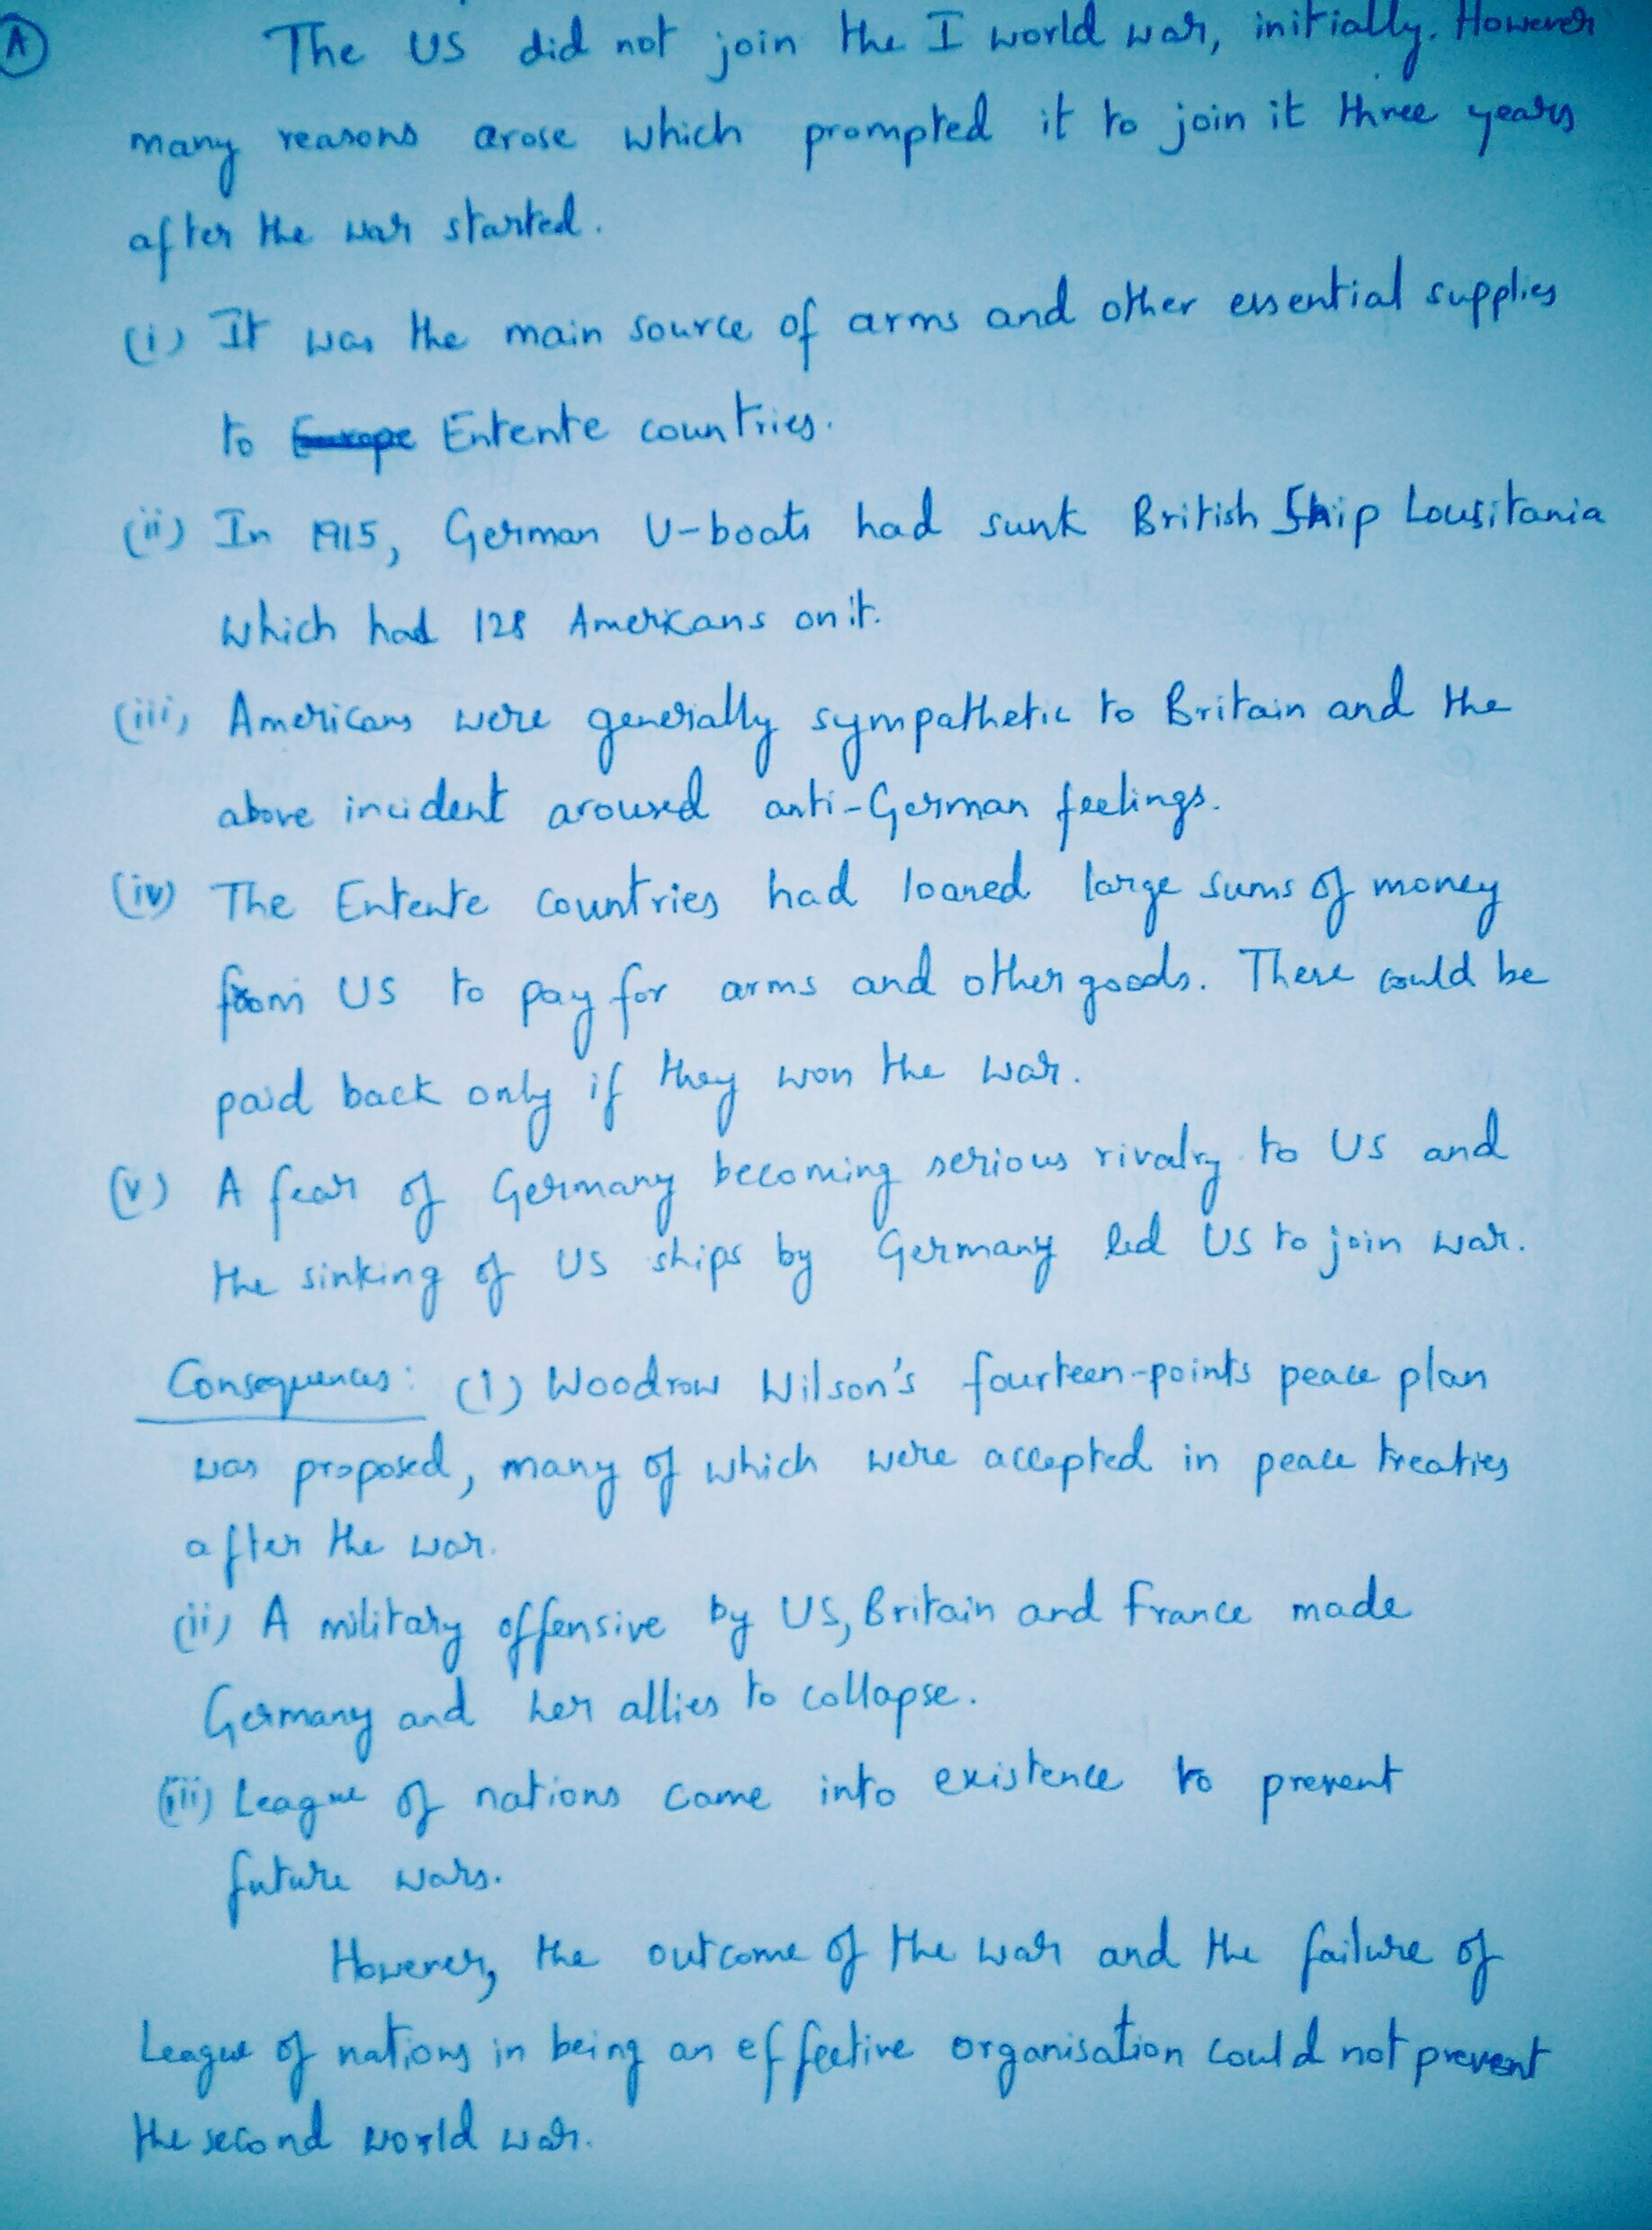 A The US did not join the I world war, initially. However
many reasons arose which prompted it to join it three years
after the war started.
(i) It was the main source of arms and other essential supplies
to Europe Entente countries.
(ii) In 1915, German U-boats had sunk British Ship Lousitania
which had 128 Americans on it.
(iii) Americans were generally sympathetic to Britain and the
above incident aroused anti-German feelings.
(iv) The Entente countries had loaned large sums of money
from US to pay for arms and other goods. These could be
paid back only if they won the war.
(v) A fear of Germany becoming serious rivalry to US and
the sinking of US ships by Germany led US to join war.
Consequences: (i) Woodrow Wilson's fourteen-points peace plan
was proposed, many of which were accepted in peace treaties
after the war.
(ii) A military offensive by US, Britain and France made
Germany and her allies to collapse.
(iii) League of nations came into existence to prevent
future wars.
However, the outcome of the war and the failure of
League of nations in being an effective organisation could not prevent
the second world war.